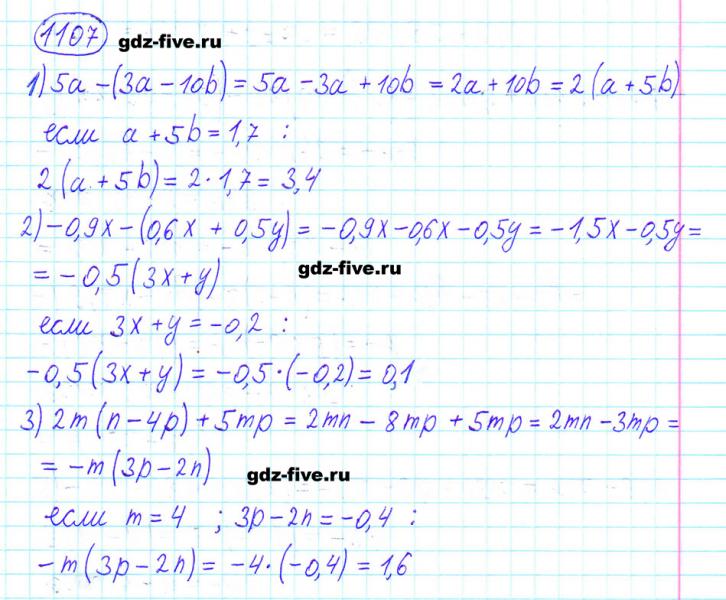 1107 gdz-five.ru
1) 5a - (3a - 10b) = 5a - 3a + 10b = 2a + 10b = 2 (a + 5b)
если a + 5b = 1,7 :
2 (a + 5b) = 2 · 1,7 = 3,4
2) -0,9x - (0,6x + 0,5y) = -0,9x - 0,6x - 0,5y = -1,5x - 0,5y =
= -0,5 (3x + y) gdz-five.ru
если 3x + y = -0,2 :
-0,5 (3x + y) = -0,5 · (-0,2) = 0,1
3) 2m (n - 4p) + 5mp = 2mn - 8mp + 5mp = 2mn - 3mp =
= -m (3p - 2n) gdz-five.ru
если m = 4 ; 3p - 2n = -0,4 :
-m (3p - 2n) = -4 · (-0,4) = 1,6